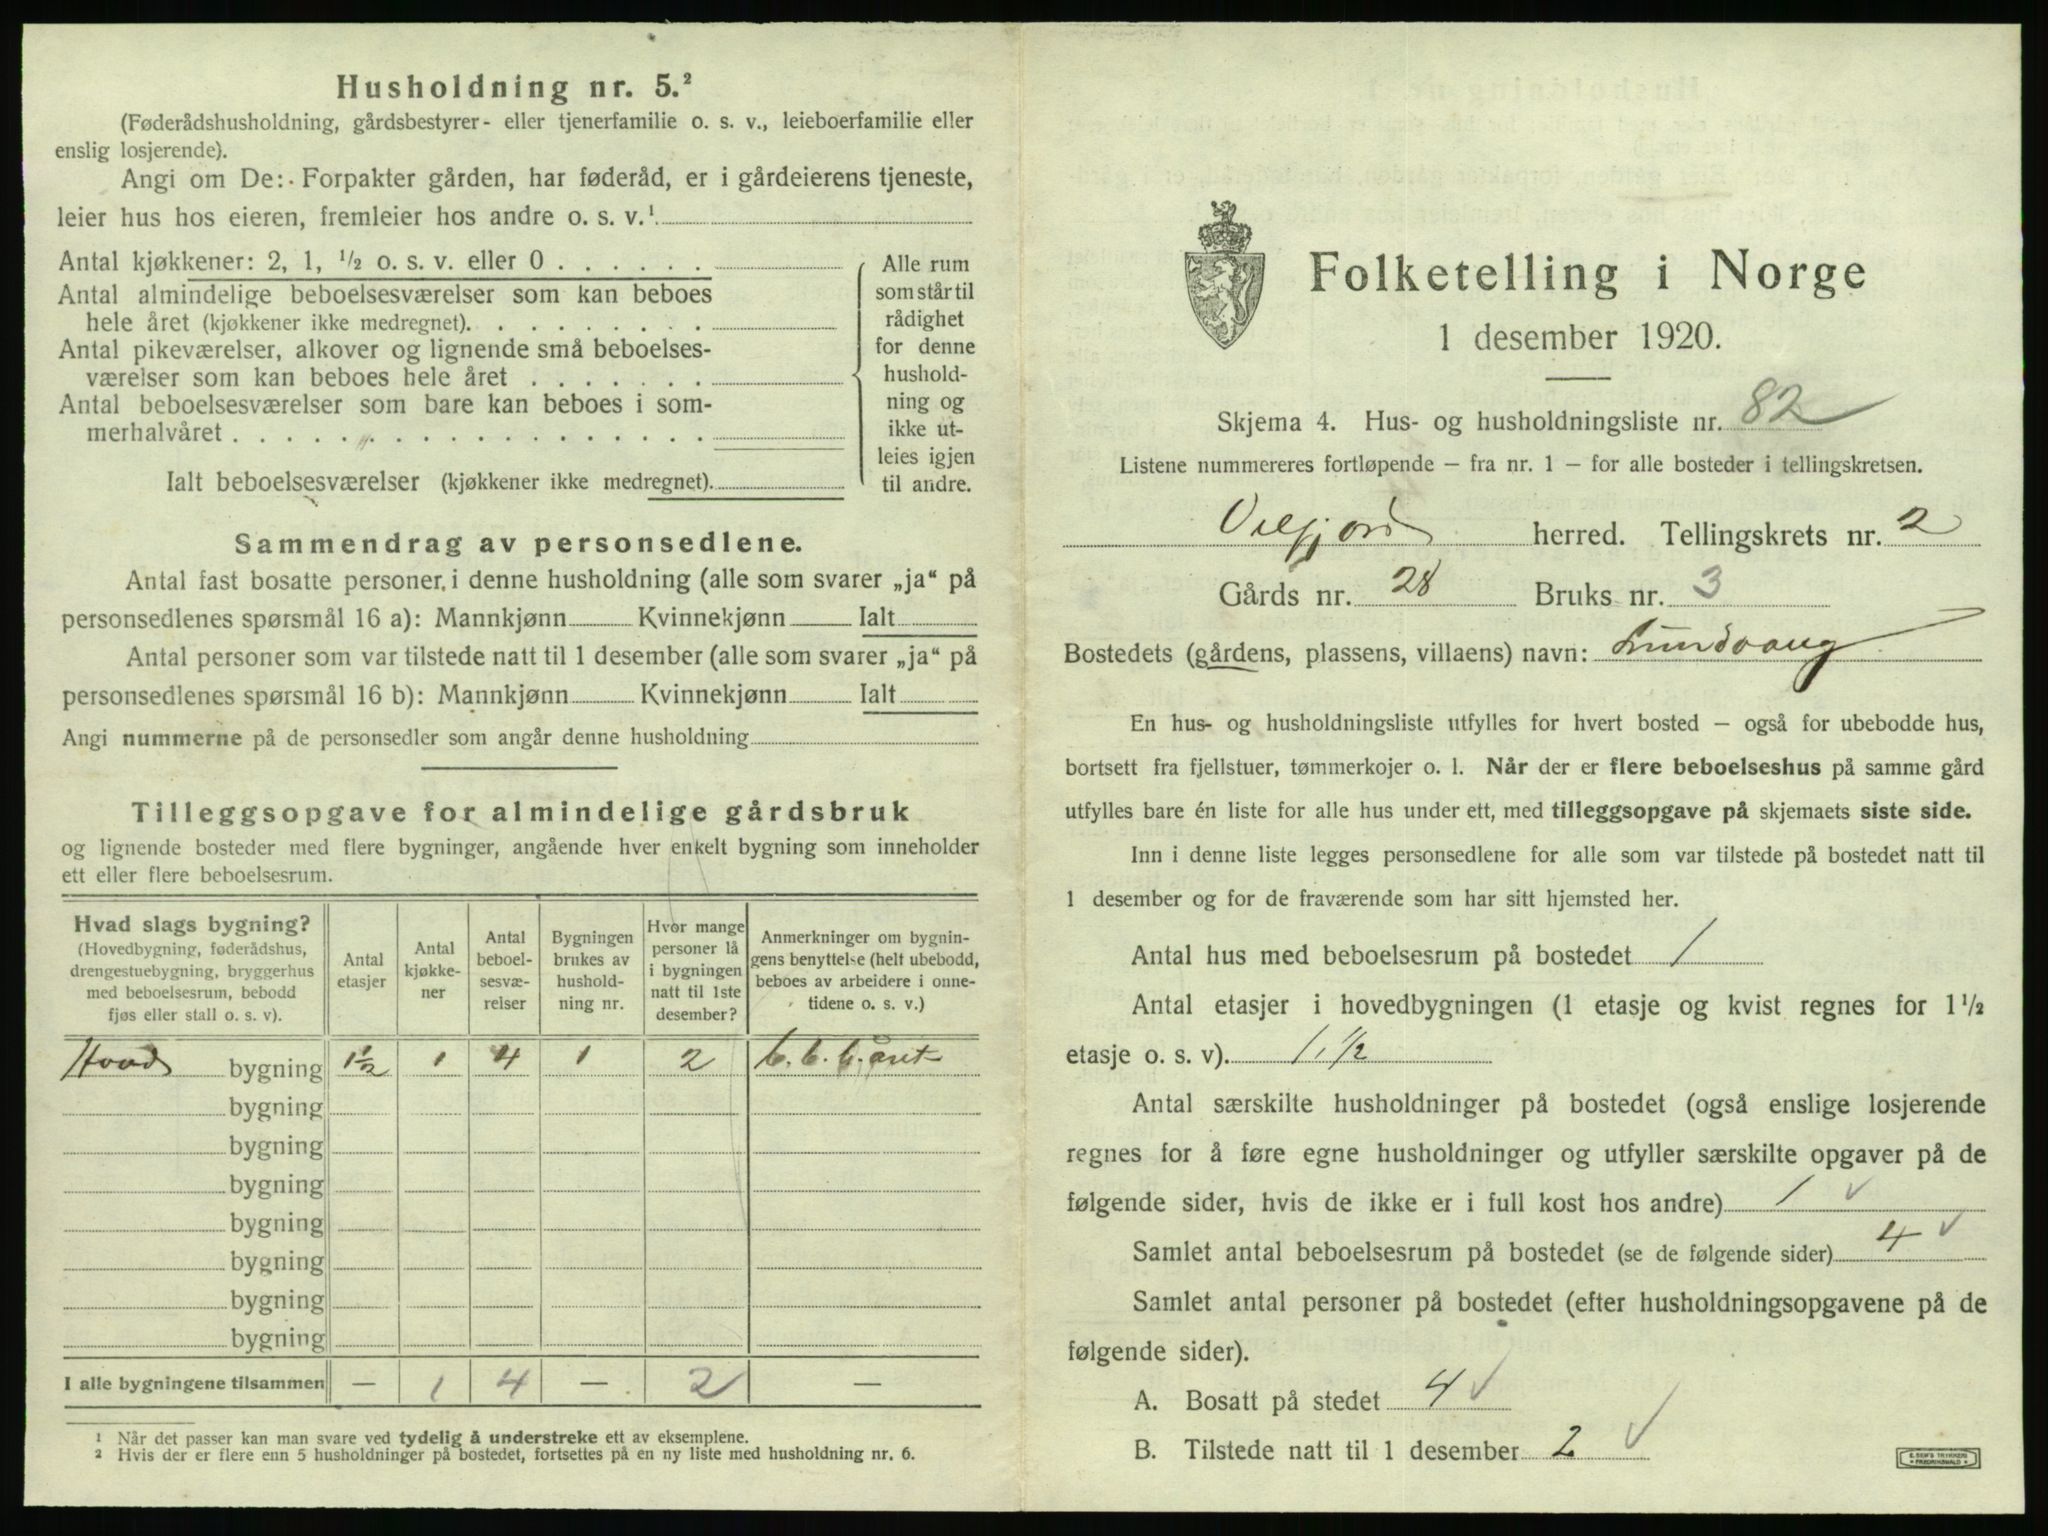 Husholdning nr. 5.²
(Føderådshusholdning, gårdsbestyrer- eller tjenerfamilie o. s. v., leieboerfamilie eller
enslig losjerende).
Angi om De: Forpakter gården, har føderåd, er i gårdeierens tjeneste,
leier hus hos eieren, fremleier hos andre o. s. v.¹
Antal kjøkkener: 2, 1, ½ o. s. v. eller 0
Antal almindelige beboelsesværelser som kan beboes
hele året (kjøkkener ikke medregnet).
Antal pikeværelser, alkover og lignende små beboelses-
værelser som kan beboes hele året
Antal beboelsesværelser som bare kan beboes i som-
merhalvåret
Ialt beboelsesværelser (kjøkkener ikke medregnet).
Alle rum
som står til
rådighet
for denne
hushold-
ning og
ikke ut-
leies igjen
til andre.
Sammendrag av personsedlene.
Antal fast bosatte personer i denne husholdning (alle som svarer „ja“ på
personsedlenes spørsmål 16 a): Mannkjønn Kvinnekjønn Ialt
Antal personer som var tilstede natt til 1 desember (alle som svarer „ja“ på
personsedlenes spørsmål 16 b): Mannkjønn Kvinnekjønn Ialt
Angi nummerne på de personsedler som angår denne husholdning
Tilleggsopgave for almindelige gårdsbruk
og lignende bosteder med flere bygninger, angående hver enkelt bygning som inneholder
ett eller flere beboelsesrum.
Hvad slags bygning?
(Hovedbygning, føderådshus,
drengestuebygning, bryggerhus
med beboelsesrum, bebodd
fjøs eller stall o. s. v).
Antal
etasjer
Antal
kjøkke-
ner
Antal
beboel-
sesvæ-
relser
Bygningen
brukes av
hushold-
ning nr.
Hvor mange
personer lå
i bygningen
natt til 1ste
desember?
Anmerkninger om bygnin-
gens benyttelse (helt ubebodd,
beboes av arbeidere i onne-
tidene o. s. v.)
Hoved bygning 1½ 1 4 1 2
bygning
bygning
bygning
bygning
bygning
bygning
bygning
I alle bygningene tilsammen — 1 4 — 2 —
¹ Når det passer kan man svare ved tydelig å understreke ett av eksemplene.
² Hvis der er flere enn 5 husholdninger på bostedet, fortsettes på en ny liste med husholdning nr. 6.
Folketelling i Norge
1 desember 1920.
Skjema 4. Hus- og husholdningsliste nr. 82
Listene nummereres fortløpende – fra nr. 1 – for alle bosteder i tellingskretsen.
Velfjord herred. Tellingskrets nr. 2
Gårds nr. 28 Bruks nr. 3
Bostedets (gårdens, plassens, villaens) navn: Lundvang
En hus- og husholdningsliste utfylles for hvert bosted – også for ubebodde hus,
bortsett fra fjellstuer, tømmerkojer o. l. Når der er flere beboelseshus på samme gård
utfylles bare én liste for alle hus under ett, med tilleggsopgave på skjemaets siste side.
Inn i denne liste legges personsedlene for alle som var tilstede på bostedet natt til
1 desember og for de fraværende som har sitt hjemsted her.
Antal hus med beboelsesrum på bostedet 1
Antal etasjer i hovedbygningen (1 etasje og kvist regnes for 1½
etasje o. s. v). 1,½
Antal særskilte husholdninger på bostedet (også enslige losjerende
regnes for å føre egne husholdninger og utfyller særskilte opgaver på de
følgende sider, hvis de ikke er i full kost hos andre) 1
Samlet antal beboelsesrum på bostedet (se de følgende sider) 4
Samlet antal personer på bostedet (efter husholdningsopgavene på de
følgende sider).
A. Bosatt på stedet 4
B. Tilstede natt til 1 desember 2